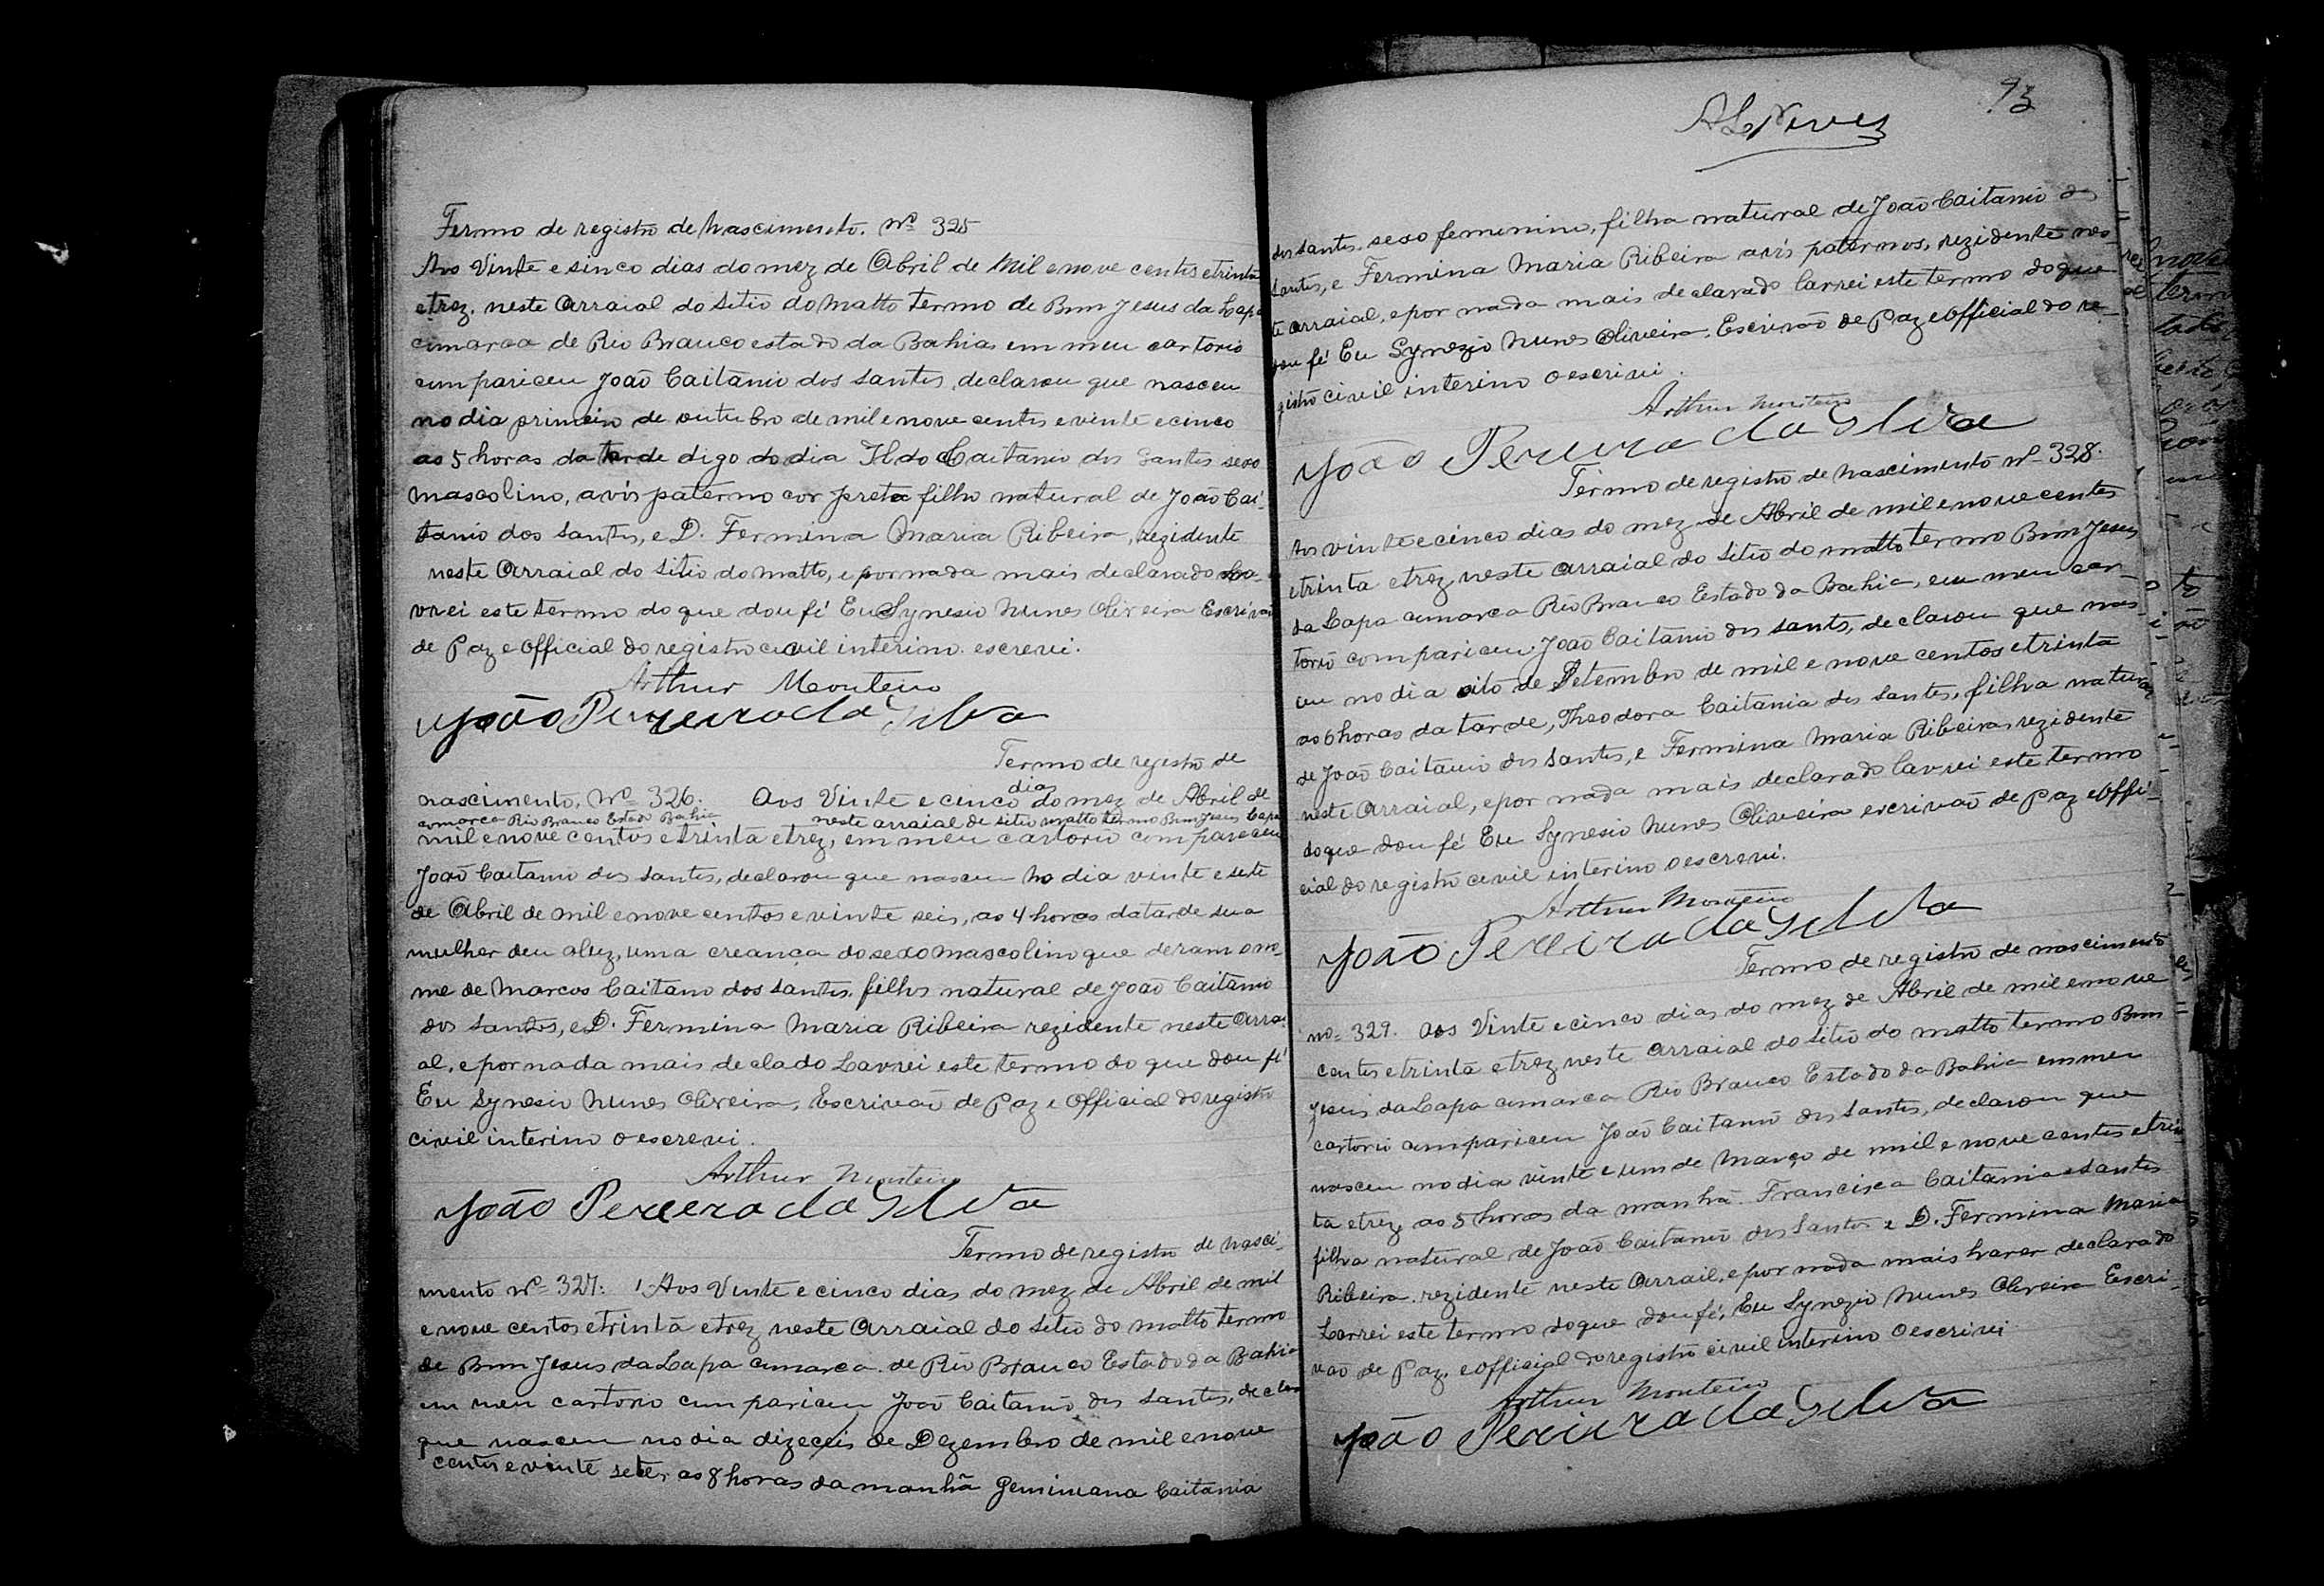 Termo de registro de Nascimento. Nº 325
Aos Vinte e sinco dias do mez de Abril de Mil e nove centos e trinta
e trez, neste Arraial do Sitio do Matto termo de Bom Jesus da Lapa
comarca de Rio Branco estado da Bahia, em meu cartorio
compariceu João Caitanio dos Santos, declarou que nasceu
no dia primeiro de outubro de mil e nove centos e vinte e cinco
as 5 horas da tarde digo do dia Ildo Caitanio dos Santos sexo
mascolino, avós paterno cor preta filho natural de João Cai-
tanio dos Santos, e D. Fermina Maria Ribeira, rezidente
neste Arraial do Sitio do Matto, e por nada mais declarado la-
vrei este termo do que dou fé Eu Synesio Nunes Oliveira Escrivão
de Paz e Official do registro civil interino escrevi.
Arthur Monteiro
João Pereira da Silva
Termo de registro de
nascimento. Nº 326. Aos Vinte e cinco dias do mez de Abril de
comarca Rio Branco Estado Bahia neste arraial de sitio matto termo Bom Jesus Lapa
mil e nove centos e trinta e trez, em meu cartorio compareceu
João Caitanio dos Santos, declarou que nasceu no dia vinte e sete
de Abril de mil e nove centos e vinte seis, as 4 horas da tarde sua
mulher deu a luz, uma creança do sexo mascolino que deram o no-
me de Marcos Caitano dos Santos, filhos natural de João Caitanio
dos Santos, e D. Fermina Maria Ribeira rezidente neste Arrai-
al, e por nada mais declado Lavrei este termo do que dou fé
Eu Synesio Nunes Oliveira, Escrivão de Paz e Official do registro
civil interino o escrevi.
Arthur Monteiro
João Pereira da Silva
Termo de registro de nasci-
mento Nº 327. Aos Vinte e cinco dias do mez de Abril de mil
e nove centos e trinta e trez neste Arraial do Sitio do matto termo
de Bom Jesus da Lapa comarca de Rio Branco Estado da Bahia
em meu cartorio compariceu João Caitanio dos Santos, declarou
que nasceu no dia dizeceis de Dezembro de mil e nove
centos e vinte sete, as 8 horas da manhã Geminiana Caitania
93
A L Neves
dos Santos, sexo feminino, filha natural de João Caitanio dos
Santos, e Fermina Maria Ribeira avós paternos, rezidente nes-
te arraial, e por nada mais declarado lavrei este termo do que
dou fé Eu Synezio Nunes Oliveira, Escrivão de Paz e official do re-
gistro civil interino o escrivi.
Arthur Monteiro
João Pereira da Silva
Termo de registro de nascimento nº 328.
Aos vinte e cinco dias do mez de Abril de mil e nove centos
e trinta e trez, neste arraial do Sitio do matto termo Bom Jesus
da Lapa comarca Rio Branco Estado da Bahia, em meu car-
torio compariceu João Caitanio dos Santos, declarou que nas-
ceu no dia oito de Setembro de mil e nove centos e trinta
as 6 horas da tarde, Theodora Caitania dos Santos, filha natural
de João Caitanio dos Santos, e Fermina Maria Ribeira, rezidente
neste Arraial, e por nada mais declarado lavrei este termo
do que dou fé Eu Synesio Nunes Oliveira escrivão de Paz e offi-
cial do registro civil interino o escrevi.
Arthur Monteiro
João Pereira da Silva
Termo de registro de nascimento
nº 329. Aos Vinte e cinco dias do mez de Abril de mil e nove
centos e trinta e trez neste Arraial do Sitio do matto termo Bom
Jesus da Lapa comarca Rio Branco Estado da Bahia em meu
cartorio compariceu João Caitanio dos Santos, declarou que
nasceu no dia vinte e um de Março de mil e nove centos e trin-
ta e trez, as 5 horas da manhã Francisca Caitania Santos
filha natural de João Caitanio dos Santos e D. Fermina Maria
Ribeira, rezidente neste Arrail, e por nada mais haver declarado
Lavrei este termo do que dou fé, Eu Synezio Nunes Oliveira Escri-
vão de Paz, e official do registro civil interino o escrivi
Arthur Monteiro
João Pereira da Silva